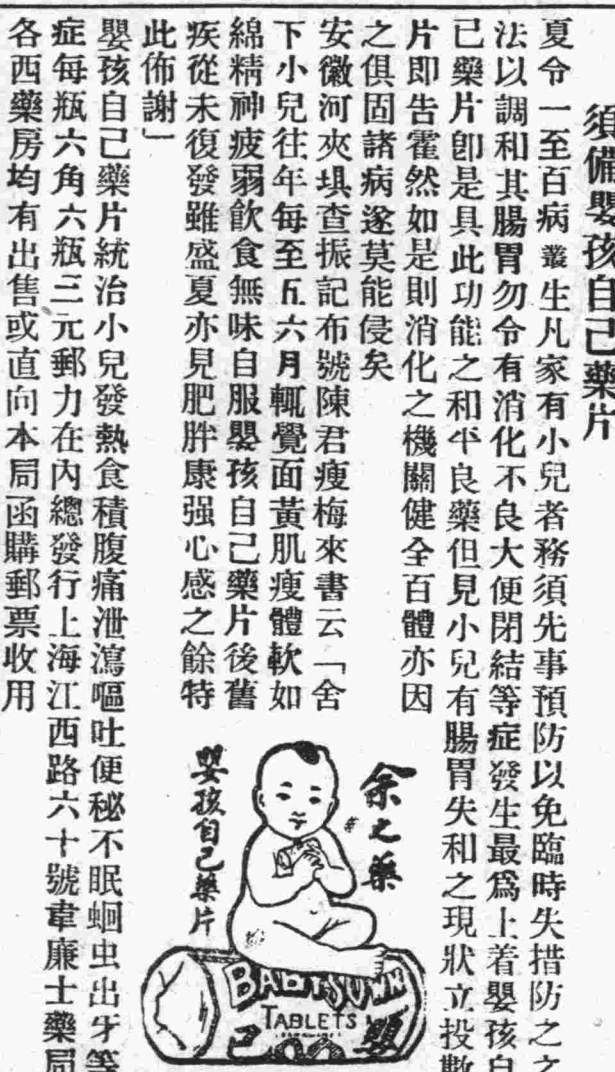 須備嬰孩自己藥片
夏令一至百病叢生凡家有小兒者務須先事預防以免臨時失措防之之
法以調和其腸胃勿令有消化不良大便閉結等症發生最爲上着嬰孩自
己藥片卽是具此功能之和平良藥但見小兒有腸胃失和之現狀立投數
片即告霍然如是則消化之機關健全百體亦因
之俱固諸病遂莫能侵矣
安徽河夾埧查振記布號陳君瘦梅來書云「舍
下小兒往年每至五六月輒覺面黃肌瘦體軟如
綿精神疲弱飲食無味自服嬰孩自己藥片後舊
疾從未復發雖盛夏亦見肥胖康强心感之餘特
此佈謝」
嬰孩自己藥片統治小兒發熱食積腹痛泄瀉嘔吐便秘不眠蛔虫出牙等
症每瓶六角六瓶三元郵力在內總發行上海江西路六十號韋廉士藥局
各西藥房均有出售或直向本局函購郵票收用
余之藥
嬰孩自己藥片
BABY'S OWN
TABLETS
嬰
己